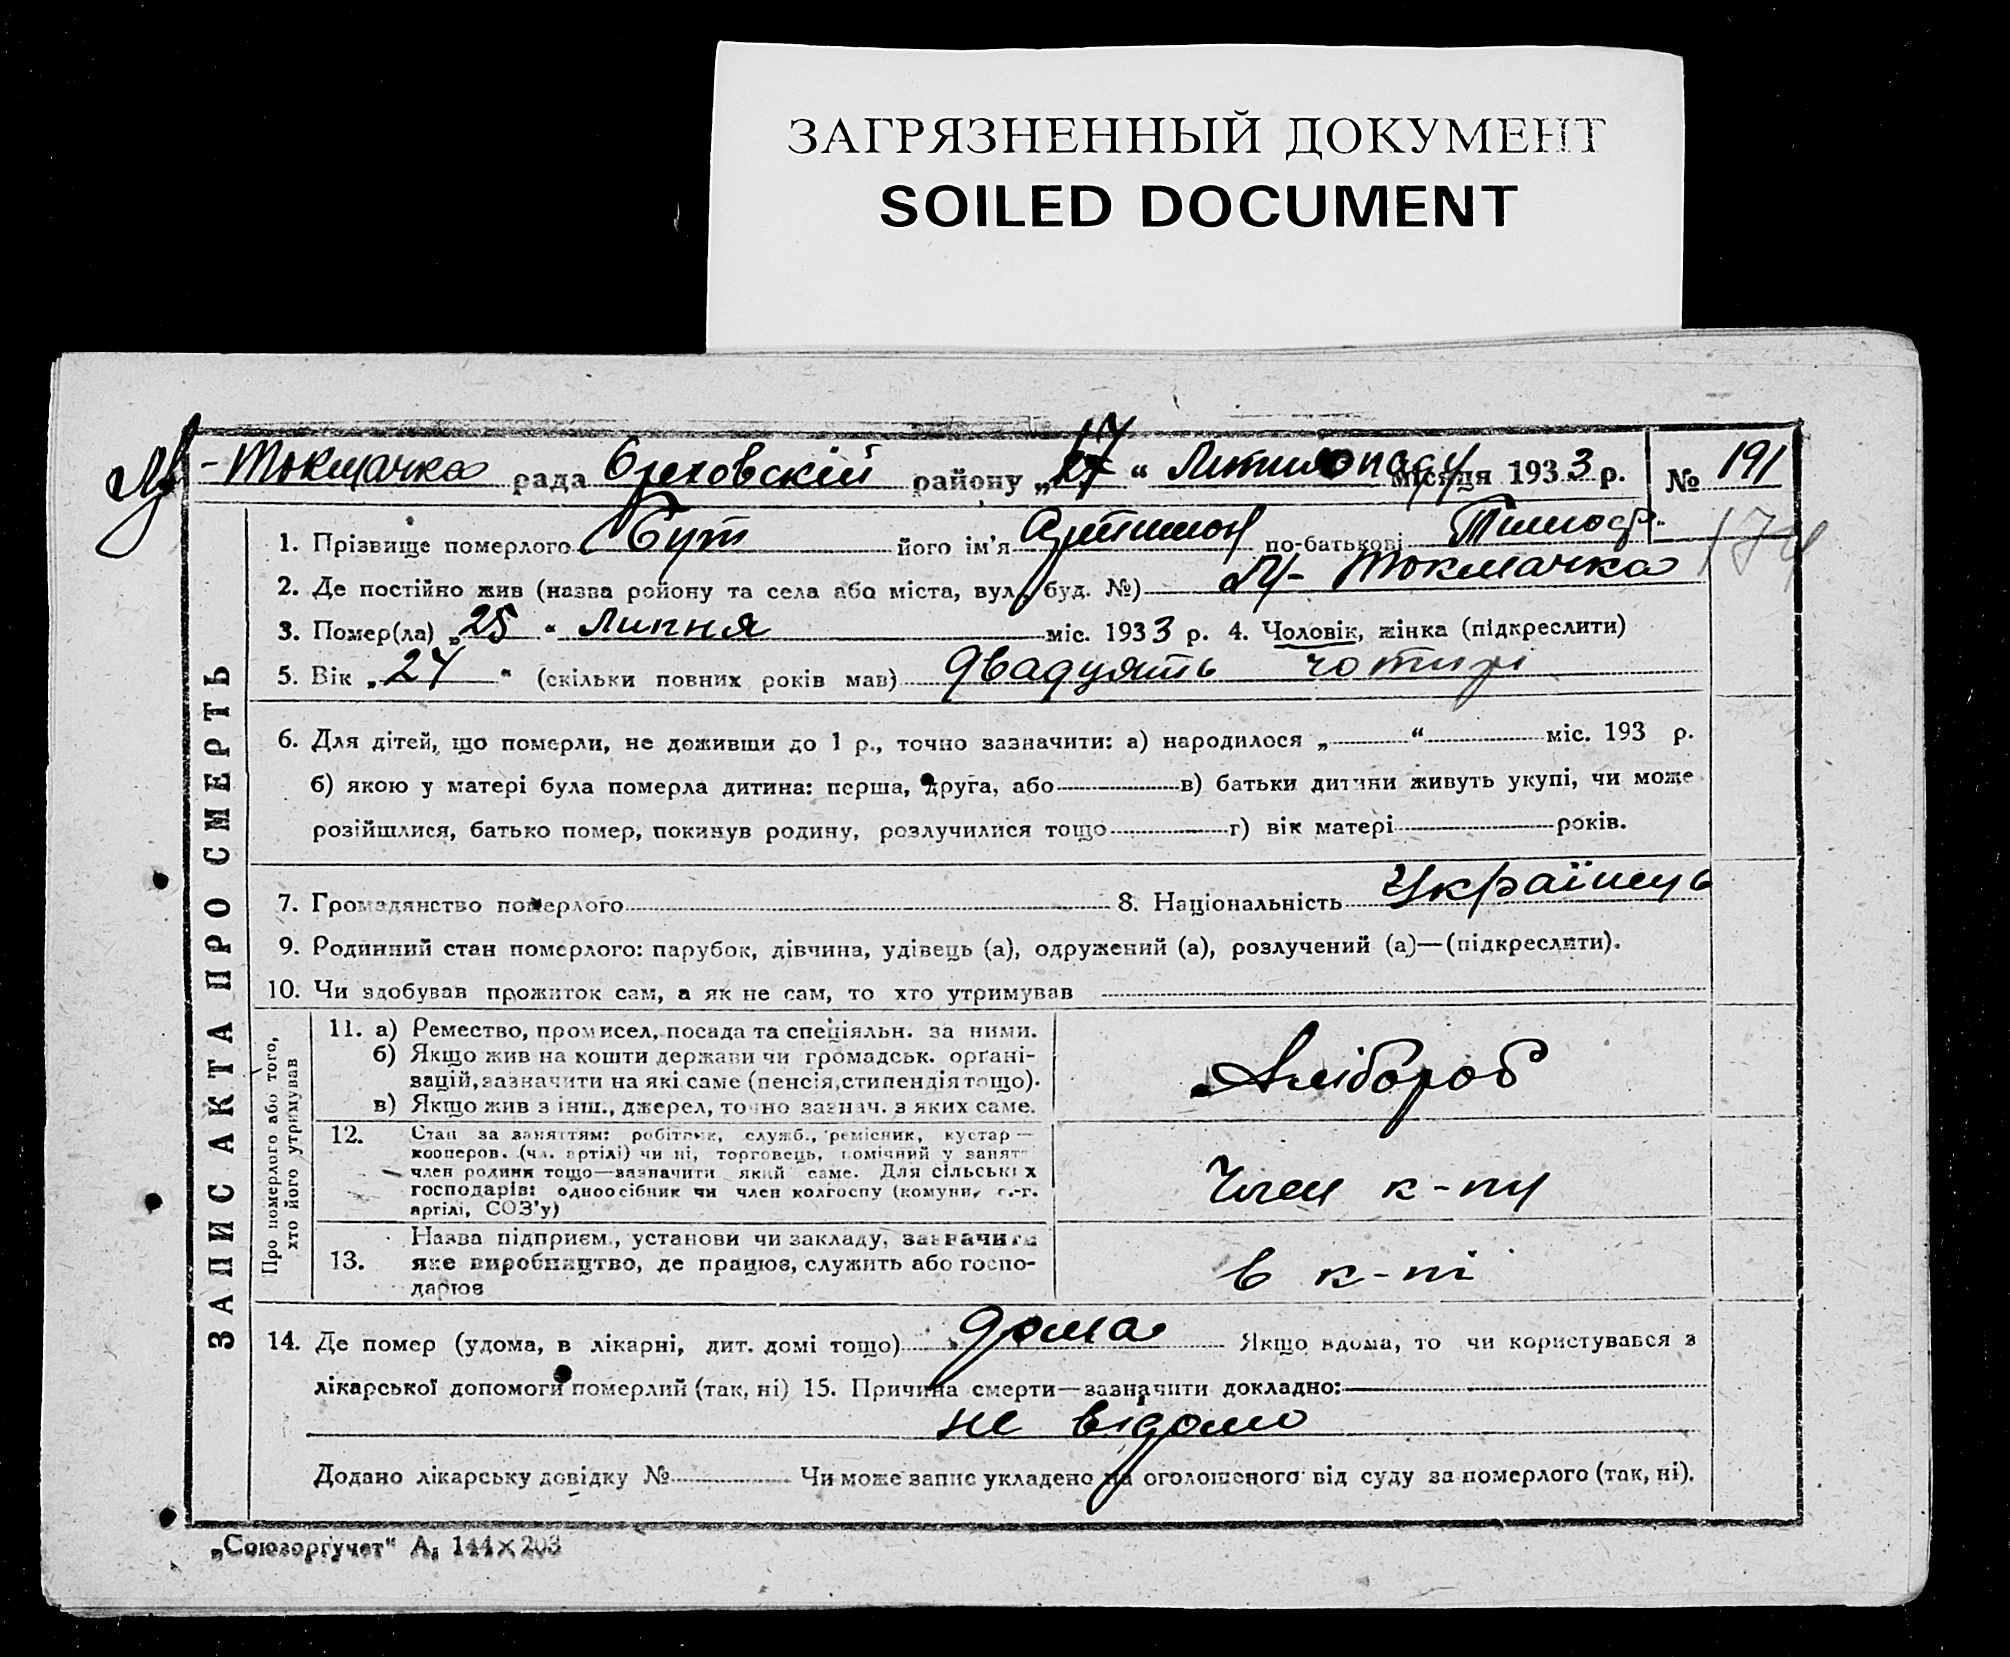 ЗАГРЯЗНЕННЫЙ ДОКУМЕНТ
SOILED DOCUMENT
М-Токмачка рада Ореховскій району „17“ Листопаду місяця 1933 р. № 191
1. Прізвище померлого Бут його ім'я по-батькові Тимоф. 174
2. Де постійно жив (назва району та села або міста, вул., буд. №) М-Токмачка
3. Помер(ла) „25“ Липня міс. 1933 р. 4. Чоловік, жінка (підкреслити)
5. Вік „24“ (скільки повних років мав) двадцять чотирі
6. Для дітей, що померли, не доживши до 1 р., точно зазначити: а) народилося „ “ міс. 193 р.
б) якою у матері була померла дитина: перша, друга, або в) батьки дитини живуть укупі, чи може
розійшлися, батько помер, покинув родину, розлучилися тощо г) вік матері років.
7. Громадянство померлого 8. Національність Українець
9. Родинний стан померлого: парубок, дівчина, удівець (а), одружений (а), розлучений (а)—(підкреслити).
10. Чи здобував прожиток сам, а як не сам, то хто утримував
ЗАПИС АКТА ПРО СМЕРТЬ
Про померлого або того,
хто його утримував
11. а) Ремество, промисел, посада та спеціяльн. за ними.
б) Якщо жив на кошти держави чи громадськ. орґані-
зацій, зазначити на які саме (пенсія, стипендія тощо).
в) Якщо жив з інш., джерел, точно зазнач. з яких саме.
Хлібороб
12. Стан за заняттям: робітник, служб., ремісник, кустар —
кооперов. (чл. артілі) чи ні, торговець, помічний у занят
член родини тощо—зазначити який саме. Для сільських
господарів: одноосібник чи член колгоспу (комуни, с.-г.
артілі, СОЗ'у)
Член к-пу
13. Назва підприєм., установи чи закладу, зазначити
яке виробництво, де працює, служить або госпо-
дарює
в к-пі
14. Де помер (удома, в лікарні, дит. домі тощо) дома Якщо вдома, то чи користувався з
лікарської допомоги померлий (так, ні) 15. Причина смерти—зазначити докладно:
не відомо
Додано лікарську довідку № Чи може запис укладено на оголошеного від суду за померлого (так, ні).
„Союзоргучет“ А₅ 144×203